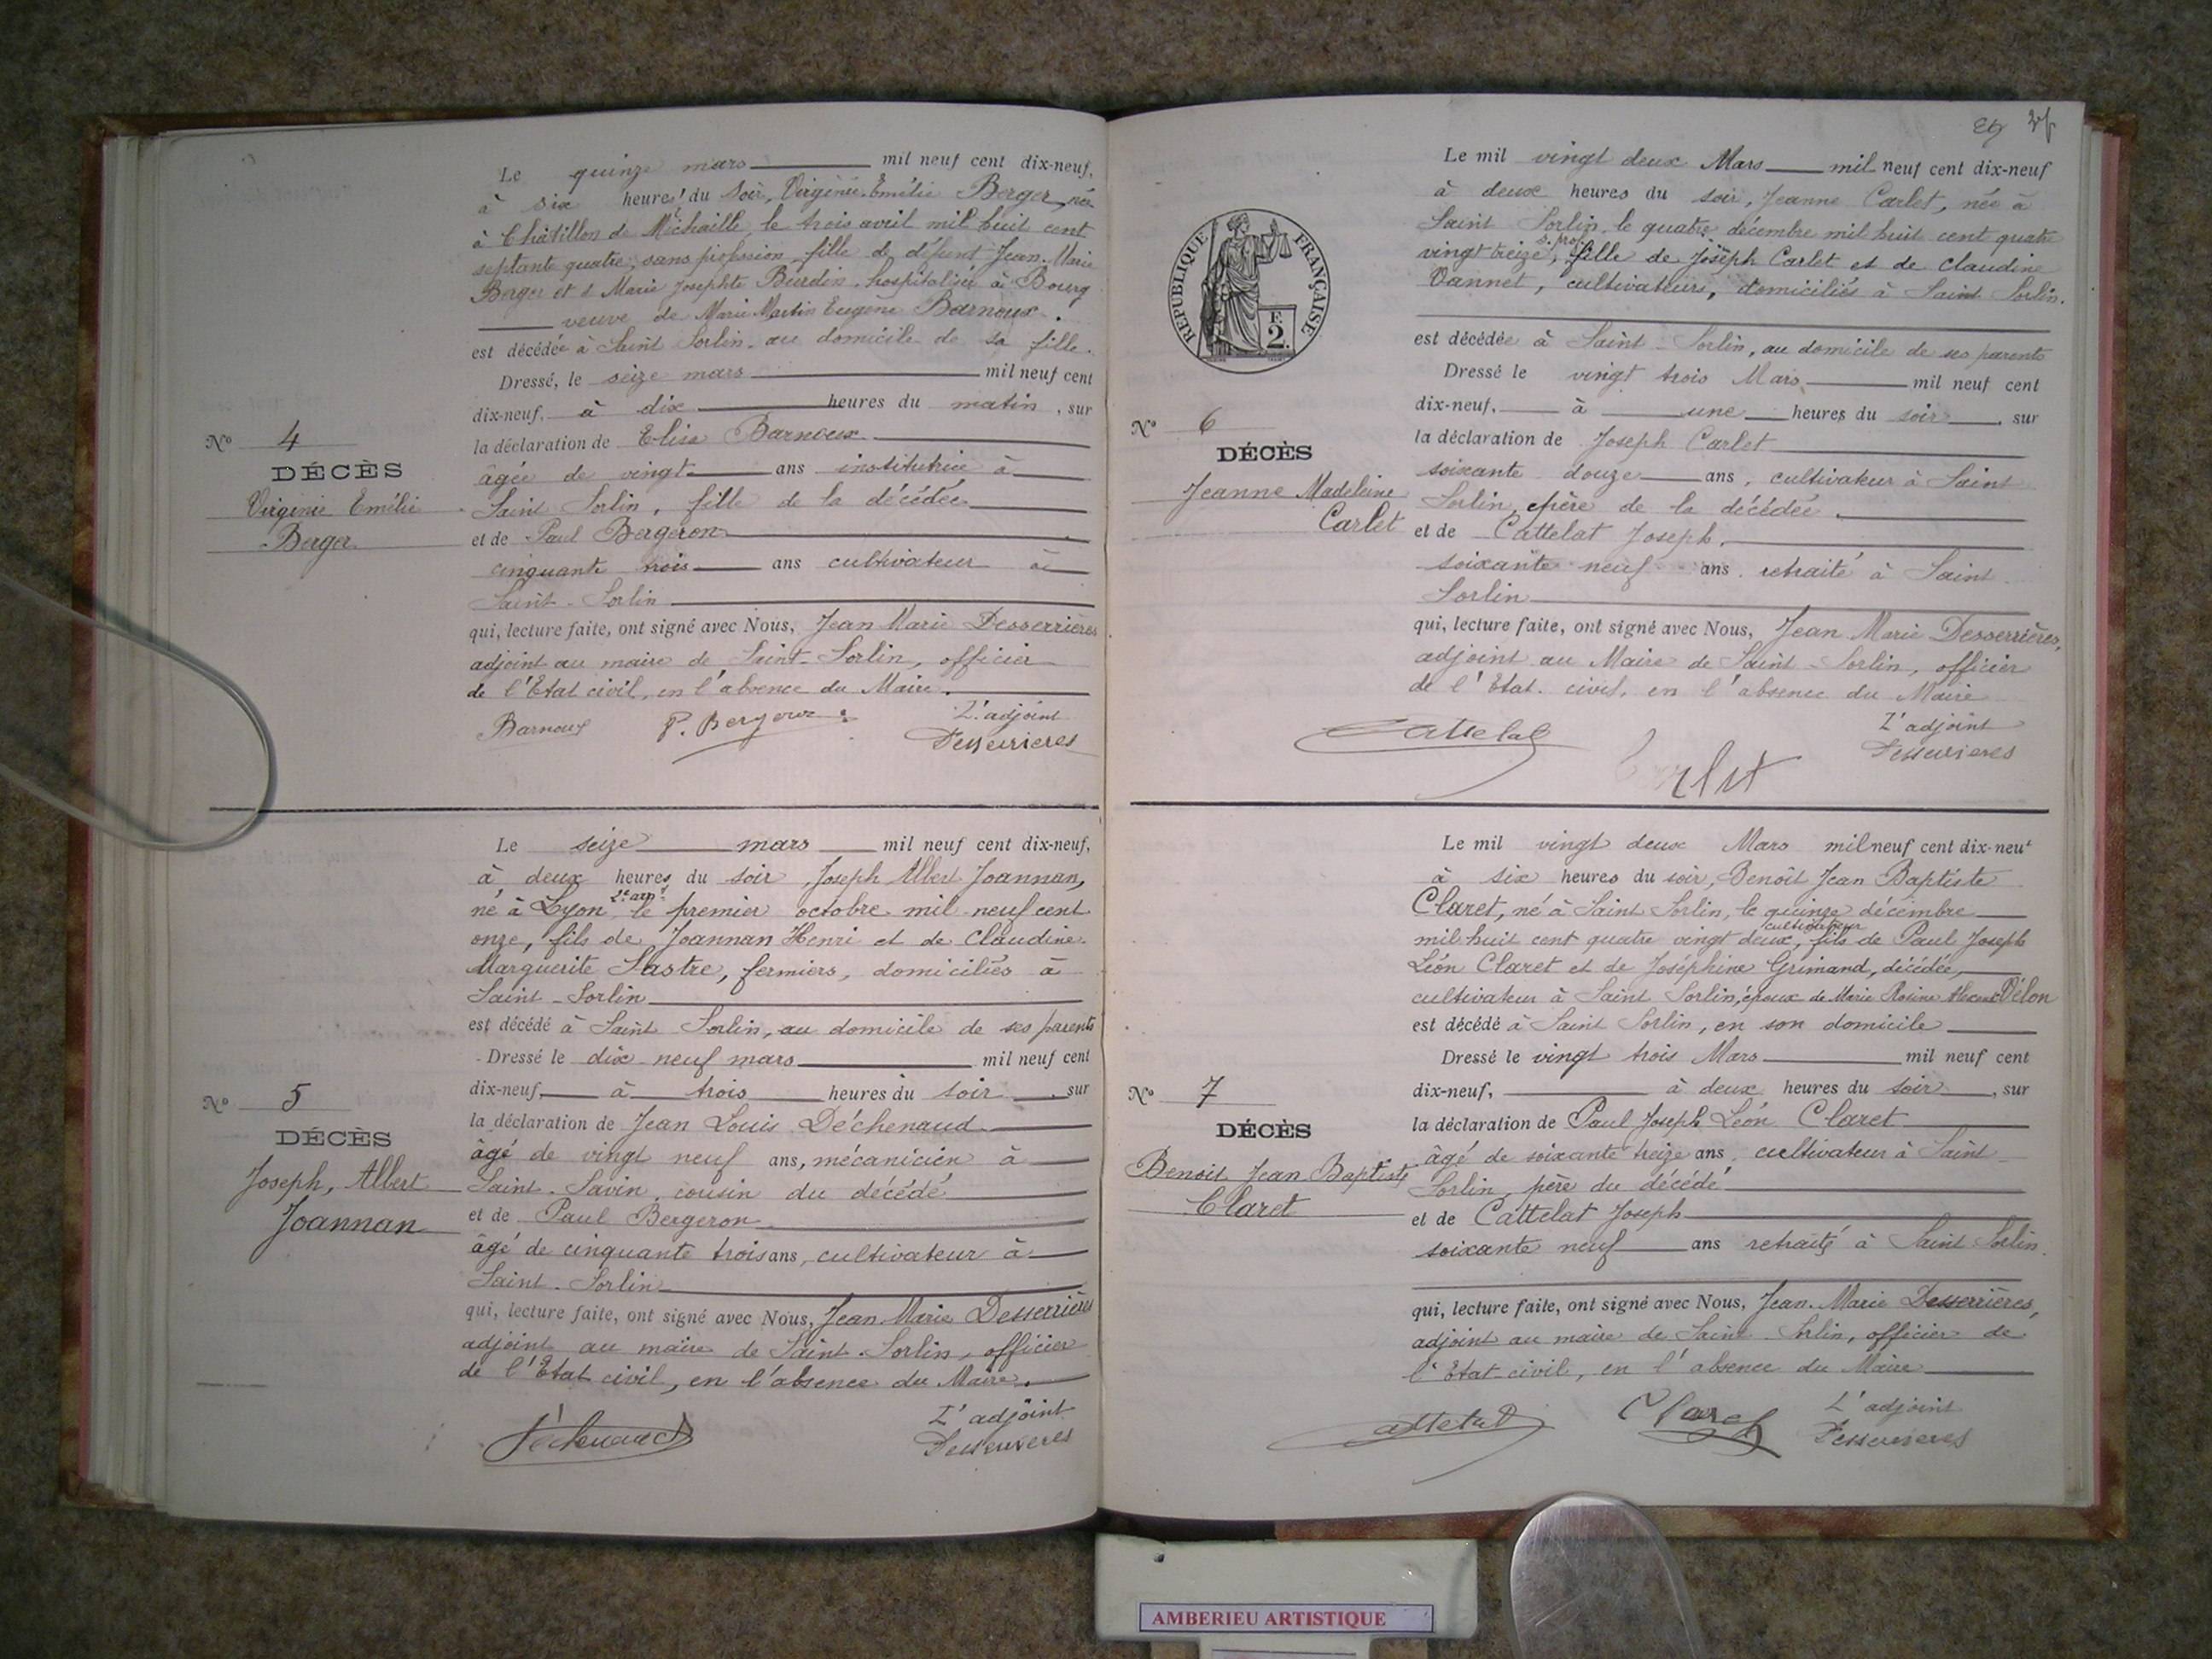 Le quinze mars mil neuf cent dix-neuf,
à six heures du soir, Virginie Emélie Berger, née
à Châtillon de Michaille, le trois avril mil huit cent
septante quatre, sans profession, fille de défunt Jean-Marie
Berger et d Marie Josephte Burdin, hospitalisée à Bourg
veuve de Marie Martin Eugène Barnoux.
est décédée à Saint Sorlin, au domicile de sa fille.
Dressé, le seize mars mil neuf cent
dix-neuf, à dix heures du matin, sur
la déclaration de Elisa Barnoux
âgée de vingt ans institutrice à
Saint Sorlin, fille de la décédée
et de Paul Bergeron
cinquante trois ans cultivateur à
Saint-Sorlin
qui, lecture faite, ont signé avec Nous, Jean Marie Desserrières
adjoint au maire de Saint-Sorlin, officier
de l'Etat civil, en l'absence du Maire.
Barnoux P. Bergeron L'adjoint
Desserrieres
No 4
DÉCÈS
Virginie Emélie
Berger
Le seize mars mil neuf cent dix-neuf,
à deux heures du soir, Joseph Albert Joannan,
né à Lyon 2e arrt le premier octobre mil neuf cent
onze, fils de Joannan Henri et de Claudine
Marguerite Sastre, fermiers, domiciliés à
Saint-Sorlin
est décédé à Saint Sorlin, au domicile de ses parents
Dressé le dix-neuf mars mil neuf cent
dix-neuf, à trois heures du soir, sur
la déclaration de Jean Louis Déchenaud
âgé de vingt neuf ans, mécanicien à
Saint-Savin, cousin du décédé
et de Paul Bergeron
âgé de cinquante trois ans, cultivateur à
Saint-Sorlin
qui, lecture faite, ont signé avec Nous, Jean-Marie Desserrières
adjoint au maire de Saint-Sorlin, officier
de l'Etat civil, en l'absence du Maire.
Déchenaud L'adjoint
Desserrieres
No 5
DÉCÈS
Joseph, Albert
Joannan
RÉPUBLIQUE FRANÇAISE
F.
2.
Le mil vingt deux Mars mil neuf cent dix-neuf
à deux heures du soir, Jeanne Carlet, née à
Saint Sorlin, le quatre décembre mil huit cent quatre
vingt treize, s. prof. fille de Joseph Carlet et de Claudine
Vannet, cultivateurs, domiciliés à Saint Sorlin.
est décédée à Saint-Sorlin, au domicile de ses parents
Dressé le vingt trois Mars mil neuf cent
dix-neuf, à une heures du soir, sur
la déclaration de Joseph Carlet
soixante douze ans, cultivateur à Saint
Sorlin, père de la décédée.
et de Cattelat Joseph.
soixante neuf ans, retraité à Saint
Sorlin
qui, lecture faite, ont signé avec Nous, Jean Marie Desserrières,
adjoint au Maire de Saint-Sorlin, officier
de l'Etat-civil, en l'absence du Maire
Cattelat Carlet L'adjoint
Desserrieres
No 6
DÉCÈS
Jeanne Madeleine
Carlet
Le mil vingt deux Mars mil neuf cent dix-neuf
à six heures du soir, Benoît Jean Baptiste
Claret, né à Saint Sorlin, le quinze décembre
mil huit cent quatre vingt deux, cultivateur fils de Paul Joseph
Léon Claret et de Joséphine Grimand, décédée,
cultivateur à Saint Sorlin, époux de Marie Rosine Délon
est décédé à Saint Sorlin, en son domicile
Dressé le vingt trois Mars mil neuf cent
dix-neuf, à deux heures du soir, sur
la déclaration de Paul Joseph Léon Claret
âgé de soixante treize ans, cultivateur à Saint-
Sorlin, père du décédé
et de Cattelat Joseph
soixante neuf ans retraité à Saint Sorlin.
qui, lecture faite, ont signé avec Nous, Jean-Marie Desserrières,
adjoint au maire de Saint-Sorlin, officier de
l'Etat-civil, en l'absence du Maire
Cattelat Claret L'adjoint
Desserrieres
No 7
DÉCÈS
Benoit Jean Baptiste
Claret
AMBERIEU ARTISTIQUE